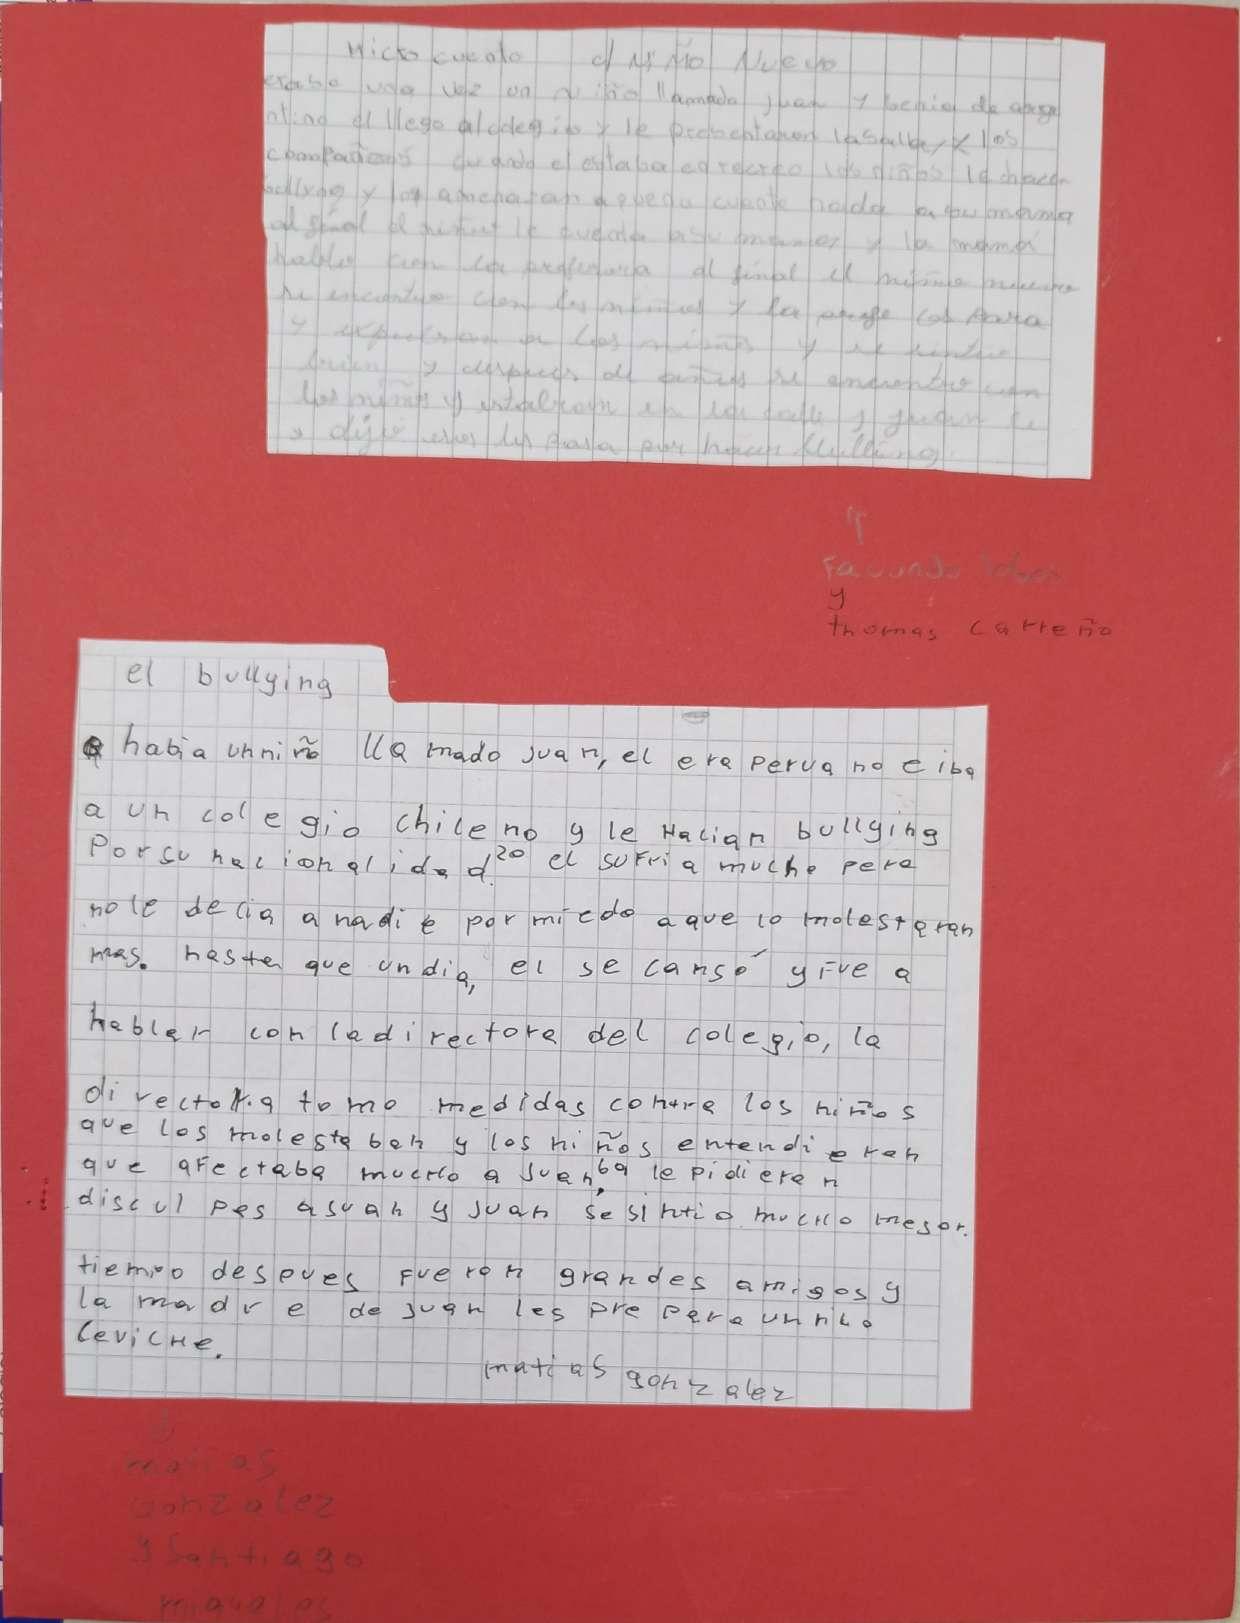 Micro cuento el niño Nuevo
erase una vez un niño llamado juan y benia de arge
ntina el llego al colegio y le presentaron la sala y los
compañeros cuando el estaba en recreo los niños le
bullyng y los a que cuente nada a su mama
al final el le cuenta a su mama y la mamá
hablo con la profesora al final el niño nuevo
se encontro con los niños y la profe los para
y a los niños y se sintio
bien y despues de años se encontro con
los niños y estaban en la calle y juan
y dijo eso les pasa por hacer bulling
Facundo
y
thomas carreño
el bullying
habia un niño llamado juan, el era peruano e iba
a un colegio chileno y le Hacian bullying
Por su nacionalidad. el sufria mucho pero
no le decia a nadie por miedo a que lo molestaran
mas. hasta que un dia, el se cansó y fue a
hablar con la directora del colegio, la
directora tomo medidas contra los niños
que los molestaban y los niños entendieron
que afectaba mucHo a Juan, le pidieron
disculpas a suan y Juan se sintio mucHo mejor.
tiempo despues fueron grandes amigos y
la madre de Juan les prepara un rico
CeviCHe.
matias gonzalez
matias
Gonzalez
y Santiago